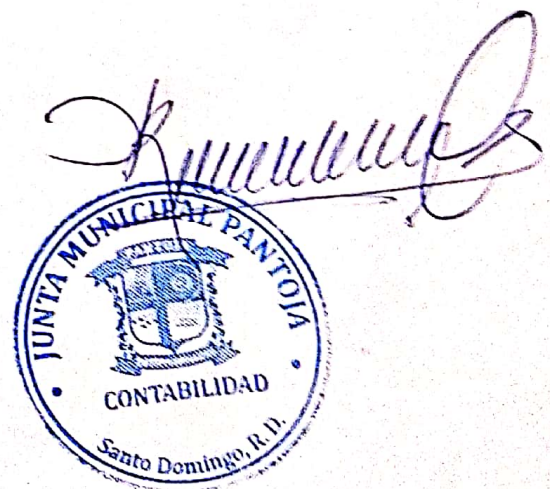 JUNTA MUNICIPAL PANTOJA
CONTABILIDAD
Santo Domingo, R. D.